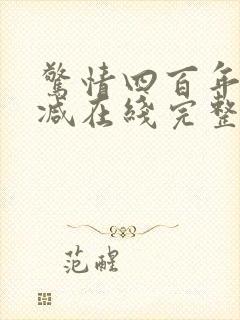 驚情四百年
減在綫完整
范醒